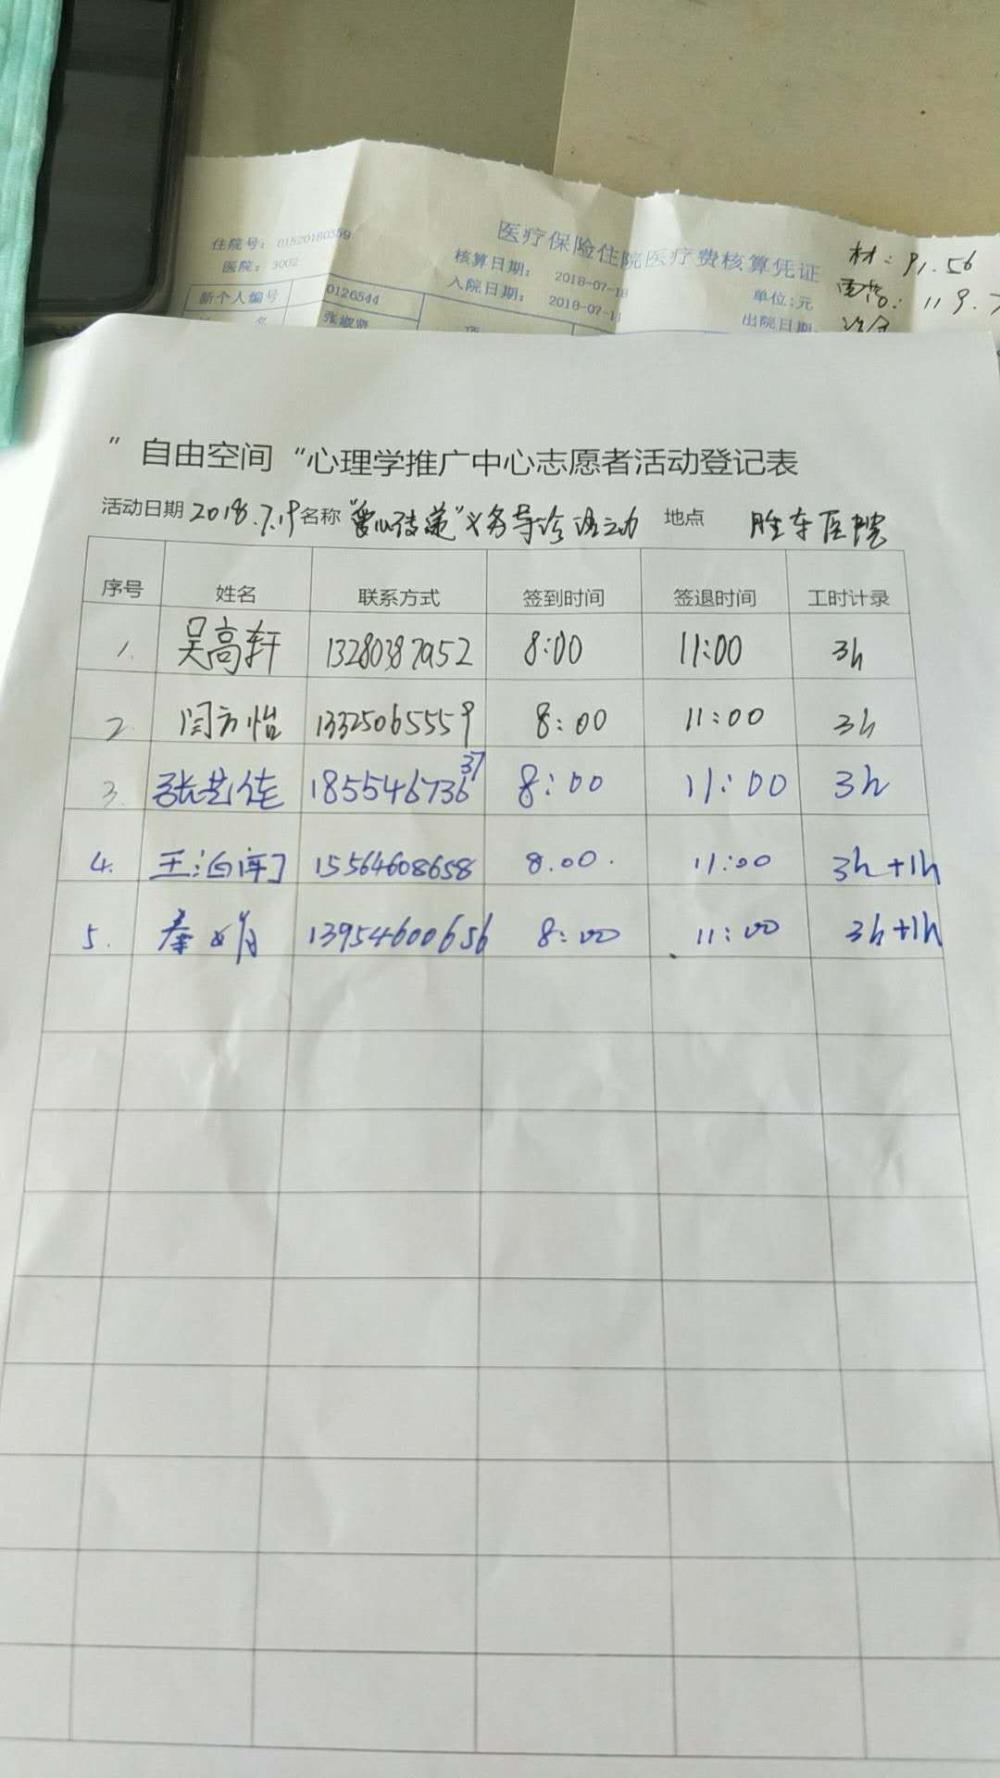 住院号: 01520180359
医疗保险住院医疗费核算凭证
材: 91.56
医院: 3002
核算日期: 2018-07-18
入院日期: 2018-07-1
单位:元
119.7
新个人编号 0126544
出院日期:
名
项
"自由空间"心理学推广中心志愿者活动登记表
活动日期 2018.7.19 名称 "爱心传递"义务导诊活动 地点 胜东医院
序号 姓名 联系方式 签到时间 签退时间 工时计录
1. 吴高轩 13280387952 8:00 11:00 3h
2 闫方怡 13325065559 8:00 11:00 3h
37
3. 张艺佳 185546736 8:00 11:00 3h
4. 王 15564608658 8.00. 11:00 3h+1h
5. 秦娟 13954600656 8:00 11:00 3h+1h